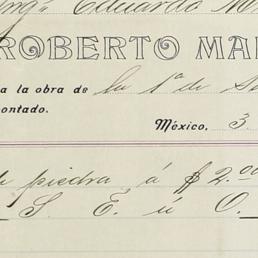 Ingº Eduardo M
ROBERTO MA
a la obra de la 1ª de S
ontado.
México, 3
de piedra á $ 2.00
S. E. ú O.